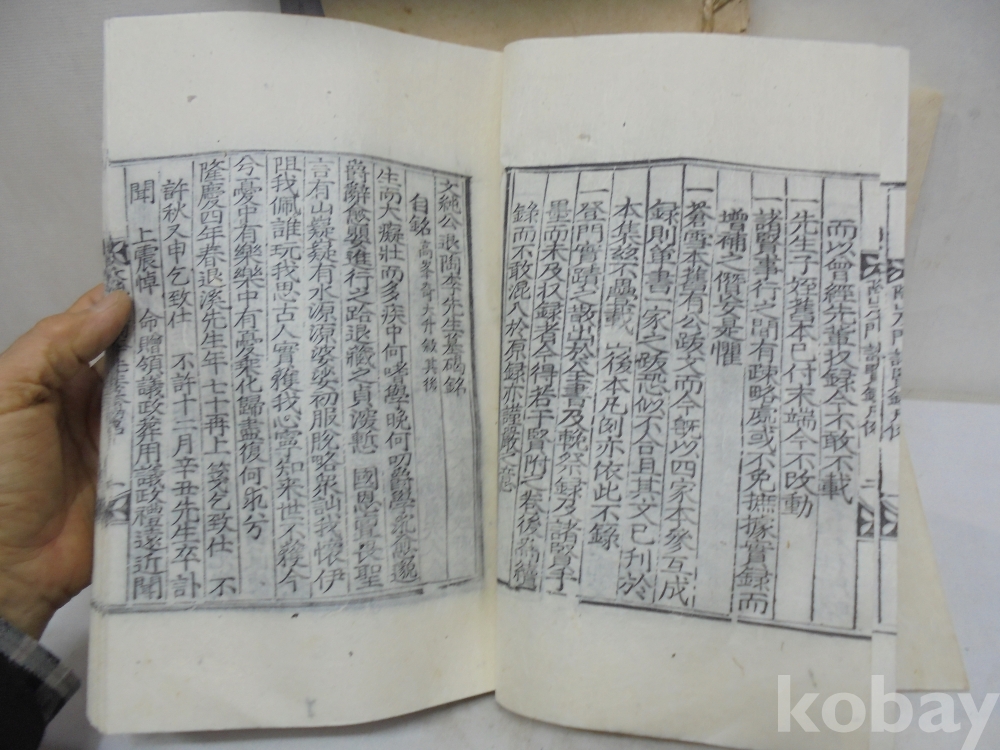 而以曾經先輩㧈録今不敢不載
一先生子姪舊本已付末端今不改動
一諸賢事行之間有疎略處或不免摭據實録而
增補之僭妄是懼
一蒼雪本舊有公跋文而今旣以四家本參互成
録則董書一家之跋恐似不合且其文已刊於
本集玆不疊載 山後本凡例亦依此不錄
一登門實蹟之誌出於全書及輓祭録及諸賢子
墨而未及収録者今得若干賢附之卷後為續
錄而不敢混入於原録亦謹嚴之意
文純公退陶李先生墓碣銘
自銘 高峯奇大升敍其後
生而大癡壯而多疾中何嗜學晚何叨爵學求愈邈
爵辭愈嬰進行之跲退藏之貞深慙 國恩亶畏聖
言有山嶷嶷有水源源婆娑初服脫略衆訕我懷伊
阻我佩誰玩我思古人實獲我心寧知來世不獲今
兮憂中有樂樂中有憂乘化歸盡復何求兮
隆慶四年春退溪先生年七十再上 箋乞致仕 不
許秋又申乞致仕 不許十二月辛丑先生卒訃
聞 上震悼 命贈領議政葬用議政禮遠近聞
kobay